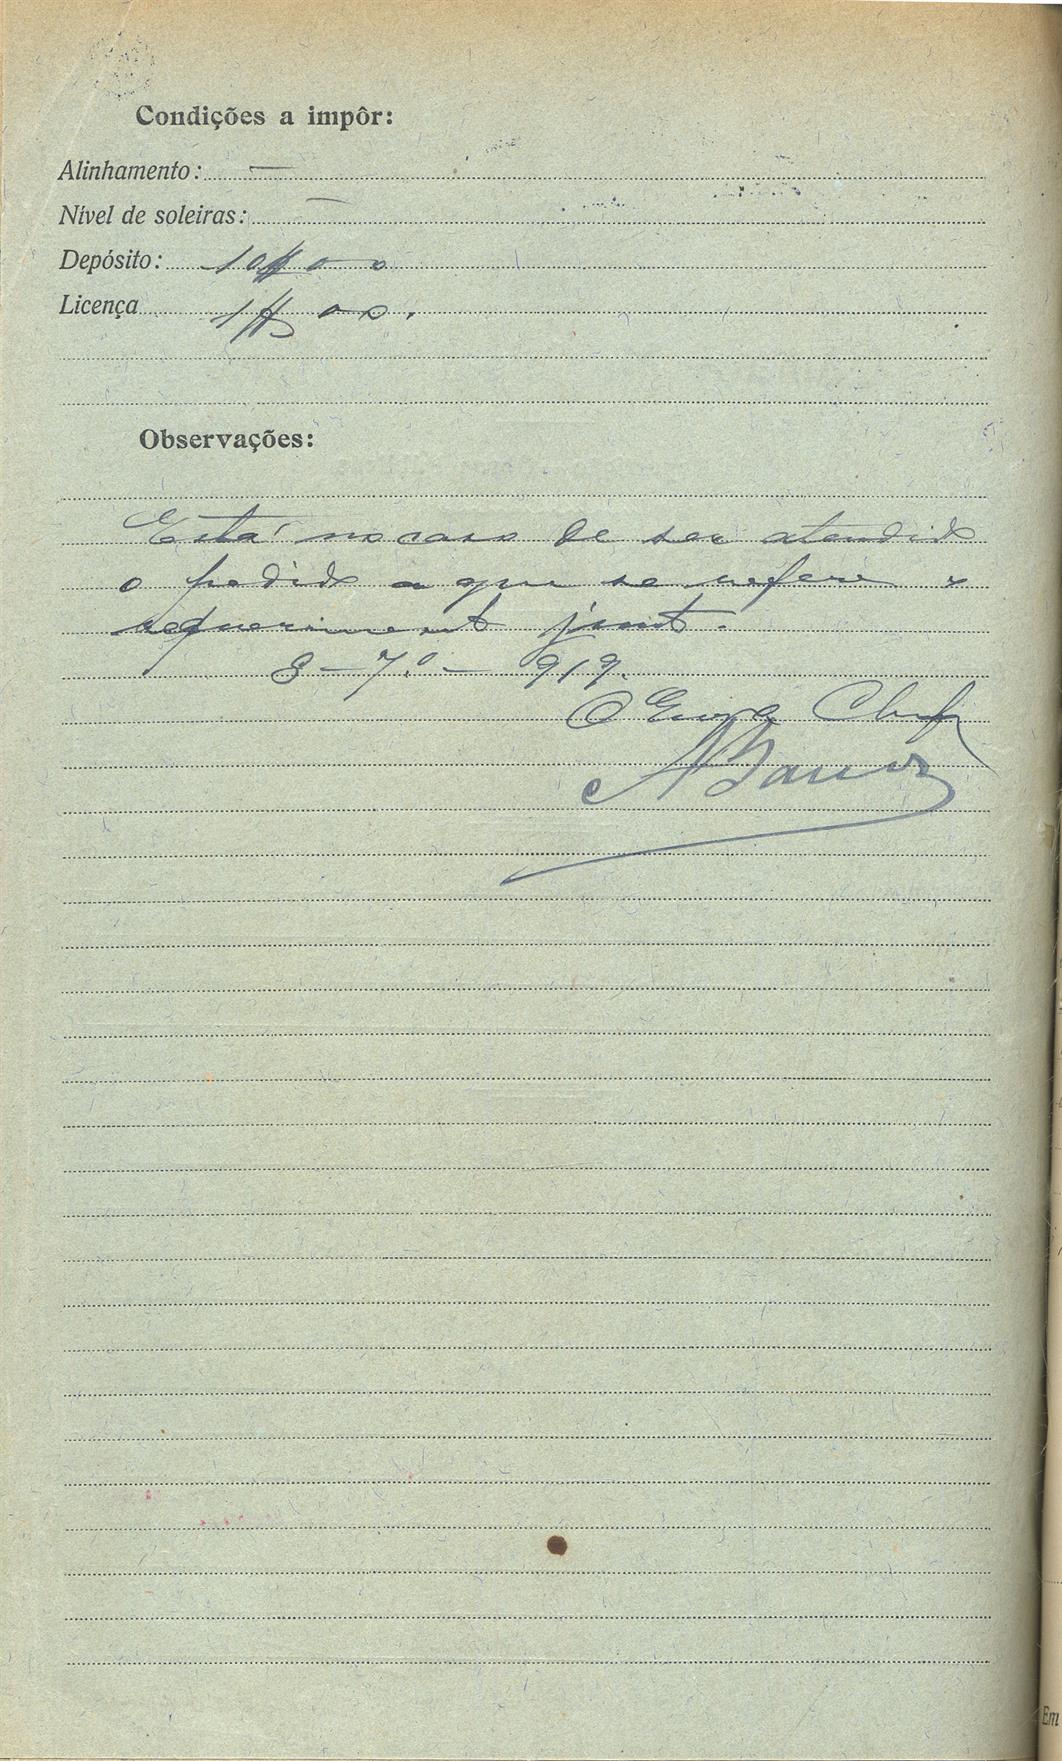 Condições a impôr:
Alinhamento: —
Nível de soleiras: —
Depósito: 10$00
Licença 1$00.
Observações:
Está no caso de ser atendido
o pedido a que se refere o
requerimento junto.
8-7.º-919.
O Eng.º Chefe
Em